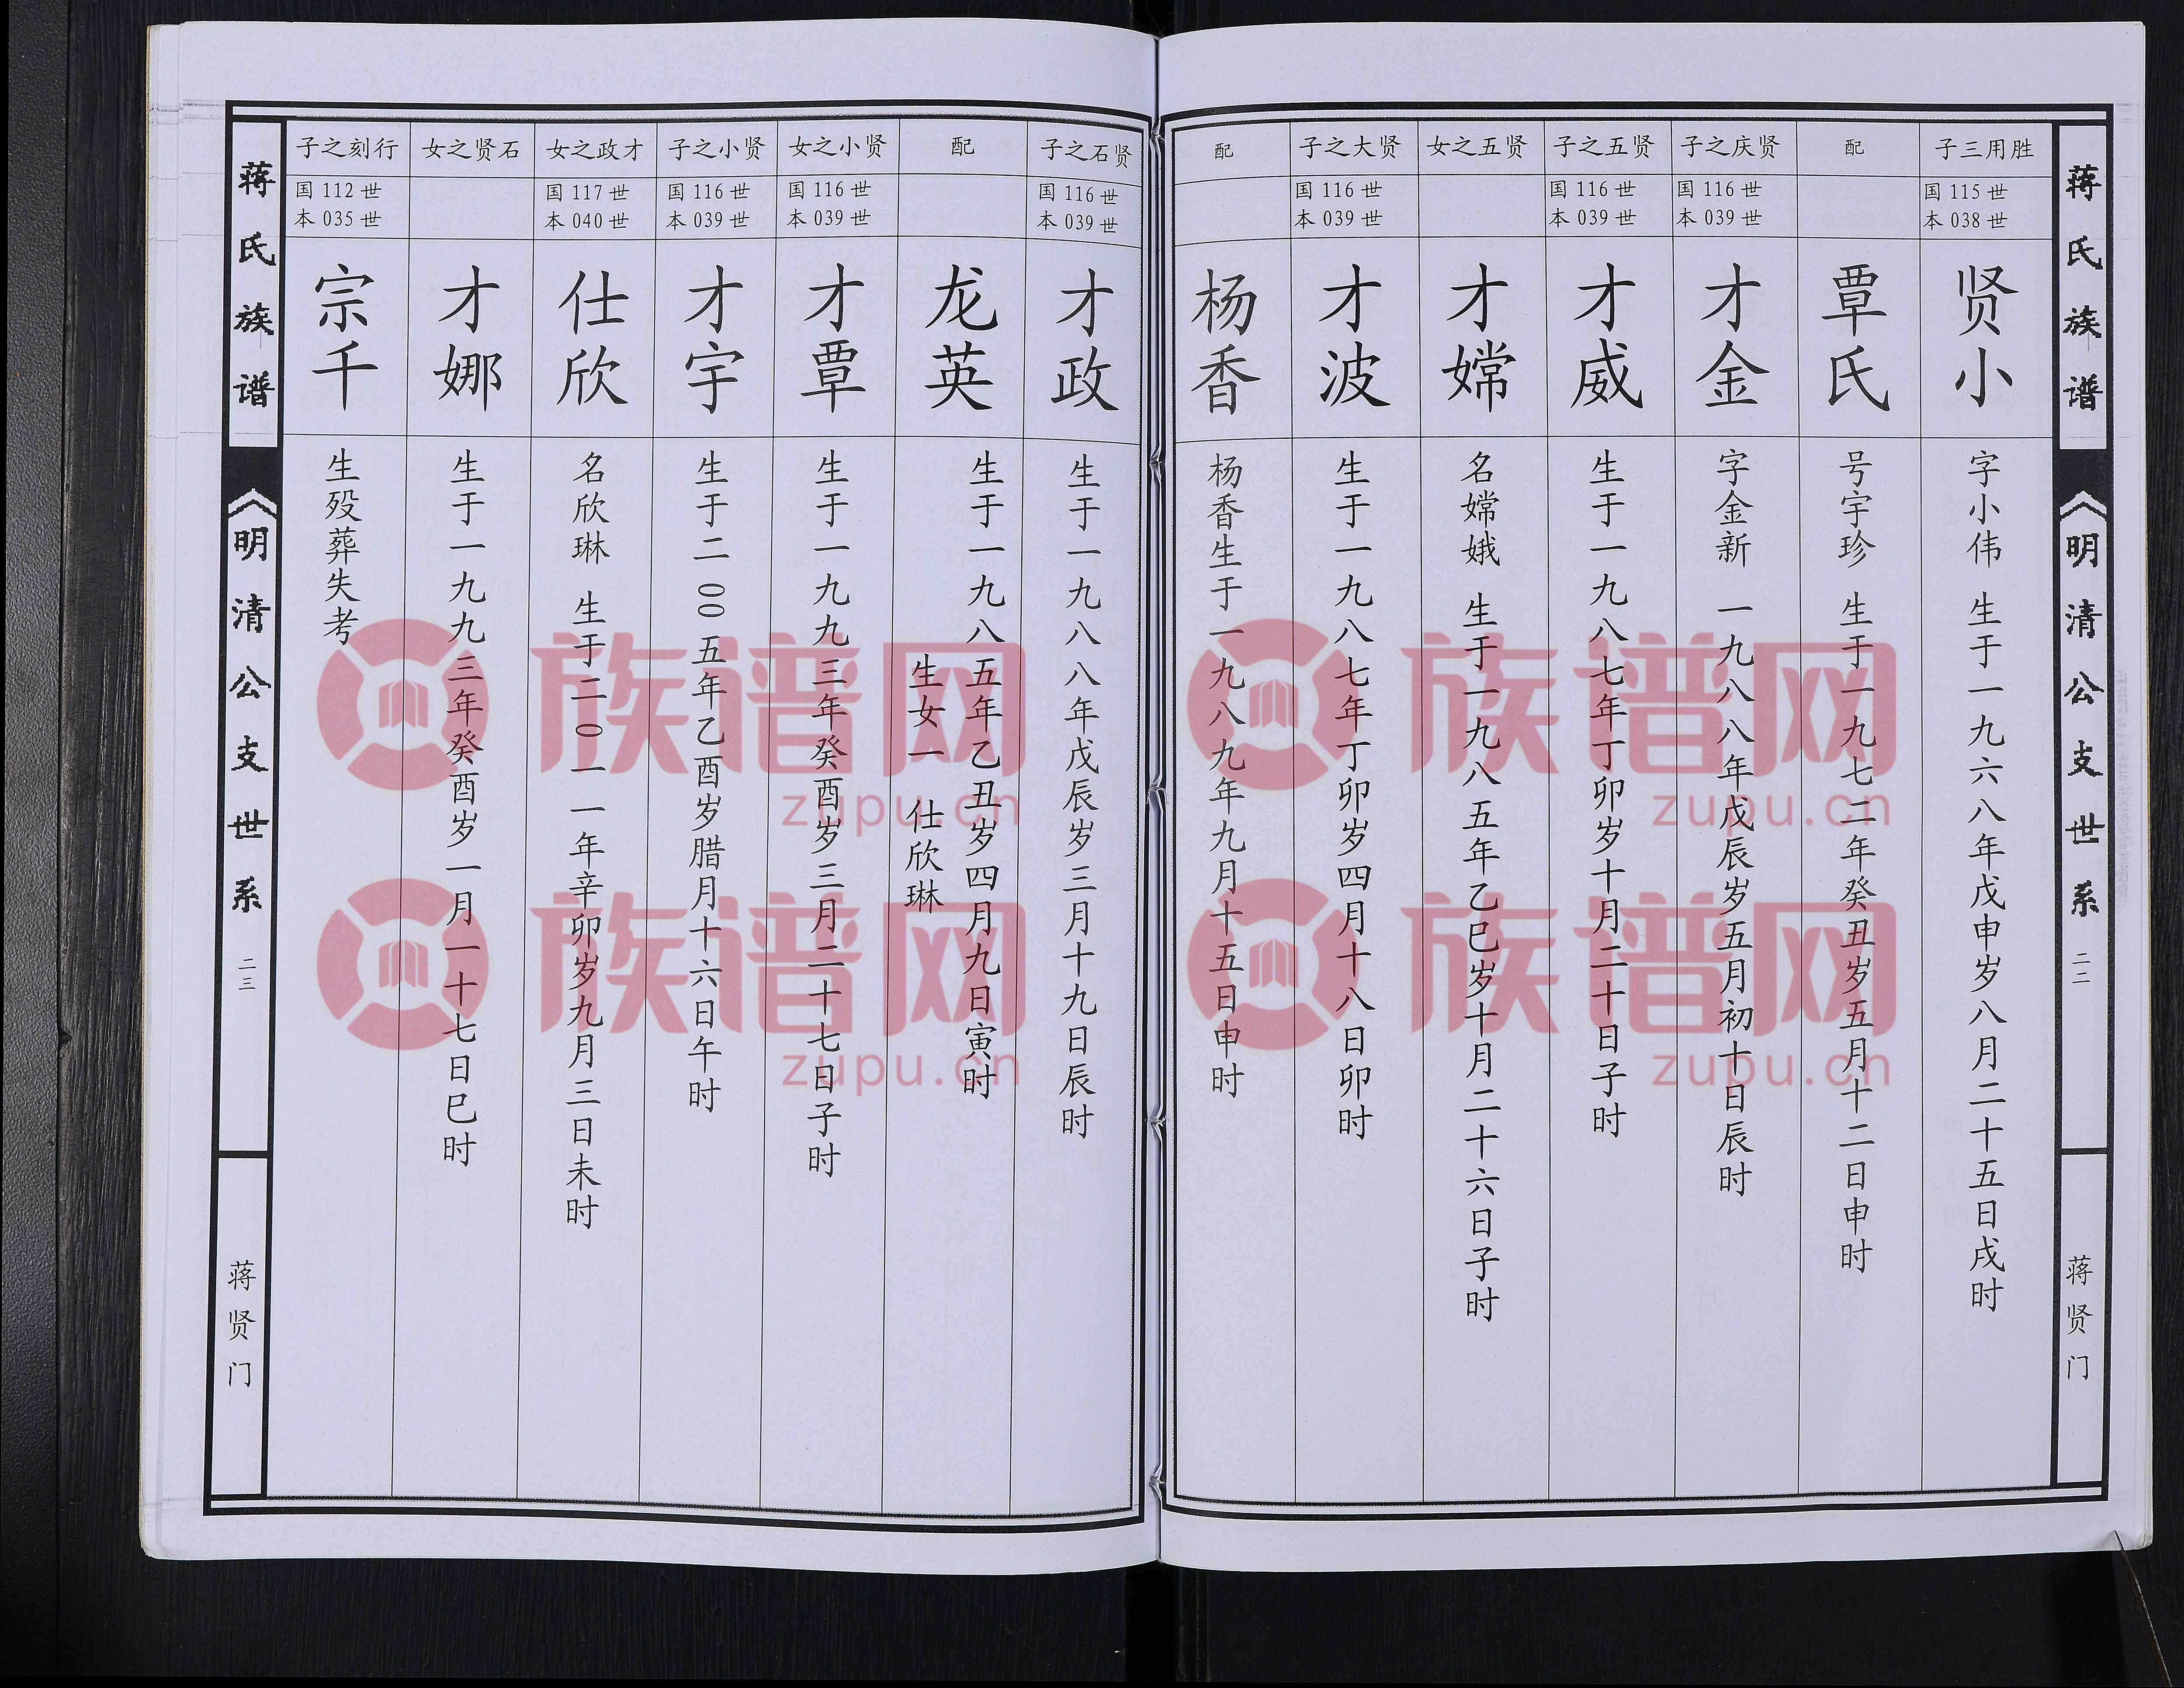 蒋氏族谱
《明清公支世系
二二
蒋贤门
胜用三子
国115世
本038世
贤小
字小伟 生于一九六八年戊申岁八月二十五日戌时
配
覃氏
号宇珍 生于一九七二年癸丑岁五月十二日申时
贤庆之子
国116世
本039世
才金
字金新 一九八八年戊辰岁五月初十日辰时
贤五之子
国116世
本039世
才威
生于一九八七年丁卯岁十月二十日子时
贤五之女
才嫦
名嫦娥 生于一九八五年乙巳岁十月二十六日子时
贤大之子
国116世
本039世
才波
生于一九八七年丁卯岁四月十八日卯时
配
杨香
杨香生于一九八九年九月十五日申时
贤石之子
国116世
本039世
才政
生于一九八八年戊辰岁三月十九日辰时
配
龙英
生于一九八五年乙丑岁四月九日寅时
生女一 仕欣琳
贤小之女
国116世
本039世
才覃
生于一九九三年癸酉岁三月二十七日子时
贤小之子
国116世
本039世
才宇
生于二00五年乙酉岁腊月十六日午时
才政之女
国117世
本040世
仕欣
名欣琳 生于二0一一年辛卯岁九月三日未时
石贤之女
才娜
生于一九九三年癸酉岁一月一十七日巳时
行刻之子
国112世
本035世
宗千
生殁葬失考
蒋氏族谱
《明清公支世系
二三
蒋贤门
族谱网
zupu.cn
族谱网
zupu.cn
族谱网
zupu.cn
族谱网
zupu.cn